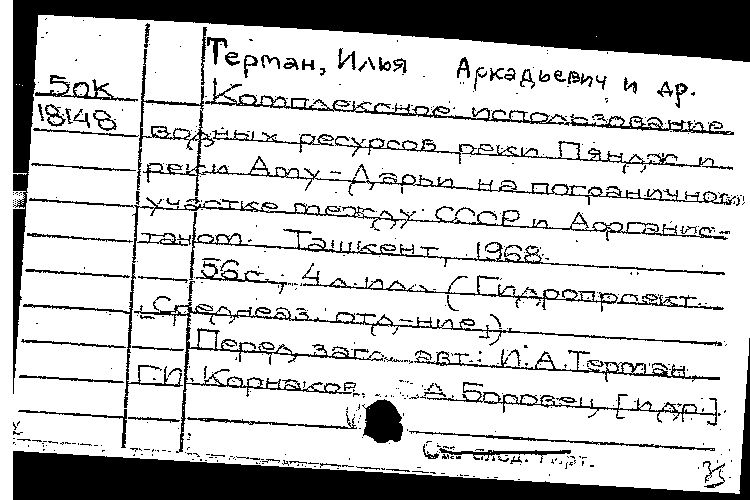 Терман, Илья Аркадьевич и др.
50К Комплексное использование
18148 водных ресурсов реки Пяндж и
реки Аму-Дарьи на пограничном
участке между СССР и Афганис-
таном. Ташкент, 1968.
56с.; 4 л. илл. (Гидропроект.
Среднеаз. отд-ние).
Перед загл. авт.: И.А.Терман,
Г.И. Корнаков, А. Боровец [и др.]
См. след. 35